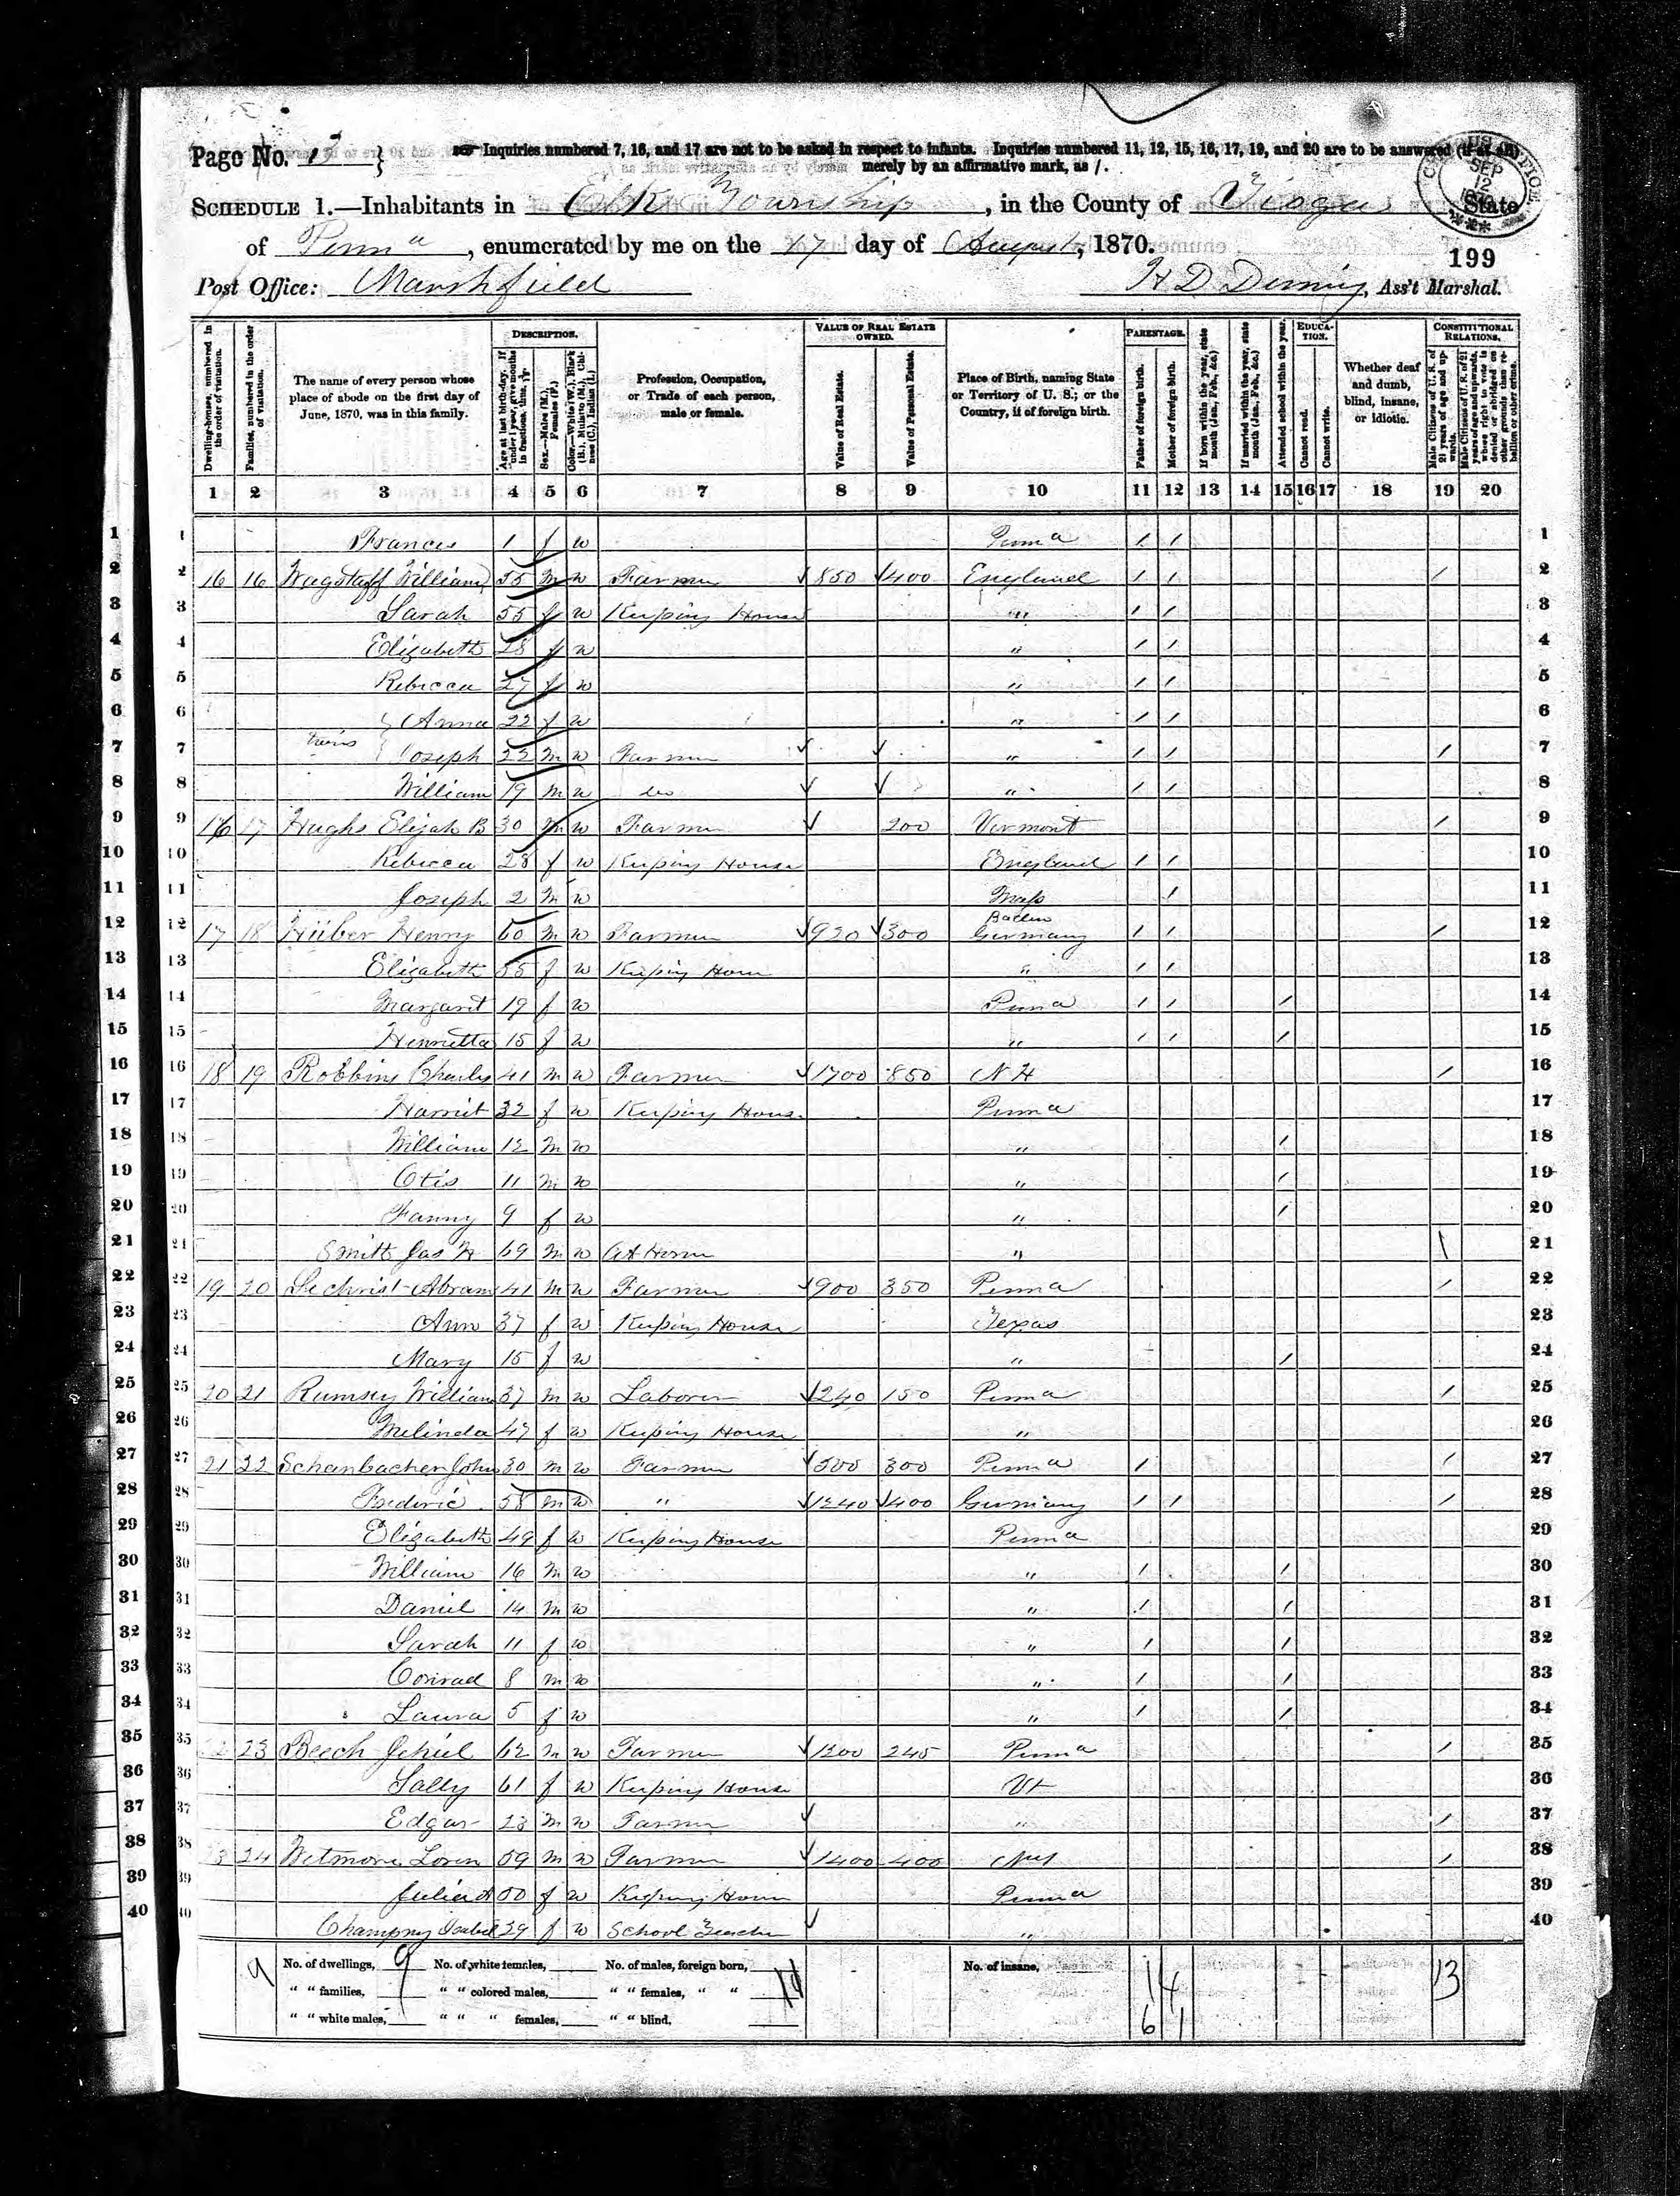 Page No. 13 } Inquiries numbered 7, 16, and 17 are not to be asked in respect to infants. Inquiries numbered 11, 12, 15, 16, 17, 19, and 20 are to be answered (if at all)
merely by an affirmative mark, as /.
SCHEDULE 1.—Inhabitants in Elk Township, in the County of Tioga State
of Penna, enumerated by me on the 17 day of August, 1870.
199
Post Office: Marshfield H D Deming, Ass't Marshal.
Dwelling-houses, numbered in the order of visitation.
Families, numbered in the order of visitation.
The name of every person whose place of abode on the first day of June, 1870, was in this family.
DESCRIPTION.
Age at last birth-day. If under 1 year, give months in fractions, thus, 3/12.
Sex.—Males (M.), Females (F.)
Color.—White (W.), Black (B.), Mulatto (M.), Chinese (C.), Indian (I.)
Profession, Occupation, or Trade of each person, male or female.
VALUE OF REAL ESTATE OWNED.
Value of Real Estate.
Value of Personal Estate.
Place of Birth, naming State or Territory of U. S.; or the Country, if of foreign birth.
PARENTAGE.
Father of foreign birth.
Mother of foreign birth.
If born within the year, state month (Jan., Feb., &c.)
If married within the year, state month (Jan., Feb., &c.)
Attended school within the year.
EDUCATION.
Cannot read.
Cannot write.
Whether deaf and dumb, blind, insane, or idiotic.
CONSTITUTIONAL RELATIONS.
Male Citizens of U. S. of 21 years of age and upwards.
Male Citizens of U. S. of 21 years of age and upwards, whose right to vote is denied or abridged on other grounds than rebellion or other crime.
1 2 3 4 5 6 7 8 9 10 11 12 13 14 15 16 17 18 19 20
1 1 Frances 1 f w Penna / / 1
2 2 16 16 Wagstaff William 55 M w Farmer 850 400 England / / / 2
3 3 Sarah 55 f w Keeping House " / / 3
4 4 Elizabeth 28 f w " / / 4
5 5 Rebecca 27 f w " / / 5
6 6 { Anna 22 f w " / / 6
7 7 twins { Joseph 22 M w Farmer " / / / 7
8 8 William 19 M w do " / / 8
9 9 16 17 Hughs Elijah B 30 M w Farmer 200 Vermont / 9
10 10 Rebecca 28 f w Keeping House England / / 10
11 11 Joseph 2 M w Mass / 11
12 12 17 18 Hüber Henry 60 M w Farmer 920 300 Baden Germany / / / 12
13 13 Elizabeth 55 f w Keeping House " / / 13
14 14 Margaret 19 f w Penna / / / 14
15 15 Henrietta 15 f w " / / / 15
16 16 18 19 Robbins Charles 41 M w Farmer 1700 850 N H / 16
17 17 Harriet 32 f w Keeping House Penna 17
18 18 William 12 M w " / 18
19 19 Otis 11 M w " / 19
20 20 Fanny 9 f w " / 20
21 21 Smith Jas 69 M w At Home " / 21
22 22 19 20 Sechrist Abram 41 M w Farmer 900 350 Penna / 22
23 23 Ann 37 f w Keeping House Texas 23
24 24 Mary 15 f w " / 24
25 25 20 21 Rumsey William 37 M w Laborer 240 150 Penna / 25
26 26 Melinda 47 f w Keeping House " 26
27 27 21 22 Schanbacher John 30 M w Farmer 500 300 Penna / / 27
28 28 Frederic 58 M w " 1240 400 Germany / / / 28
29 29 Elizabeth 49 f w Keeping House Penna 29
30 30 William 16 M w " / / 30
31 31 Daniel 14 M w " / / 31
32 32 Sarah 11 f w " / / 32
33 33 Conrad 8 M w " / / 33
34 34 Laura 5 f w " / / 34
35 35 22 23 Beech Jehiel 62 M w Farmer 1200 245 Penna / 35
36 36 Sally 61 f w Keeping House Vt 36
37 37 Edgar 23 M w Farmer " / 37
38 38 23 24 Wetmore Loren 59 M w Farmer 1400 400 / 38
39 39 Julia A 50 f w Keeping House Penna 39
40 40 Champney Isabel 29 f w School Teacher " 40
9 No. of dwellings, 9 No. of white females, No. of males, foreign born, No. of insane, 14 13
" " families, " " colored males, " " females, " " 14
" " white males, " " " females, " " blind, 6 1